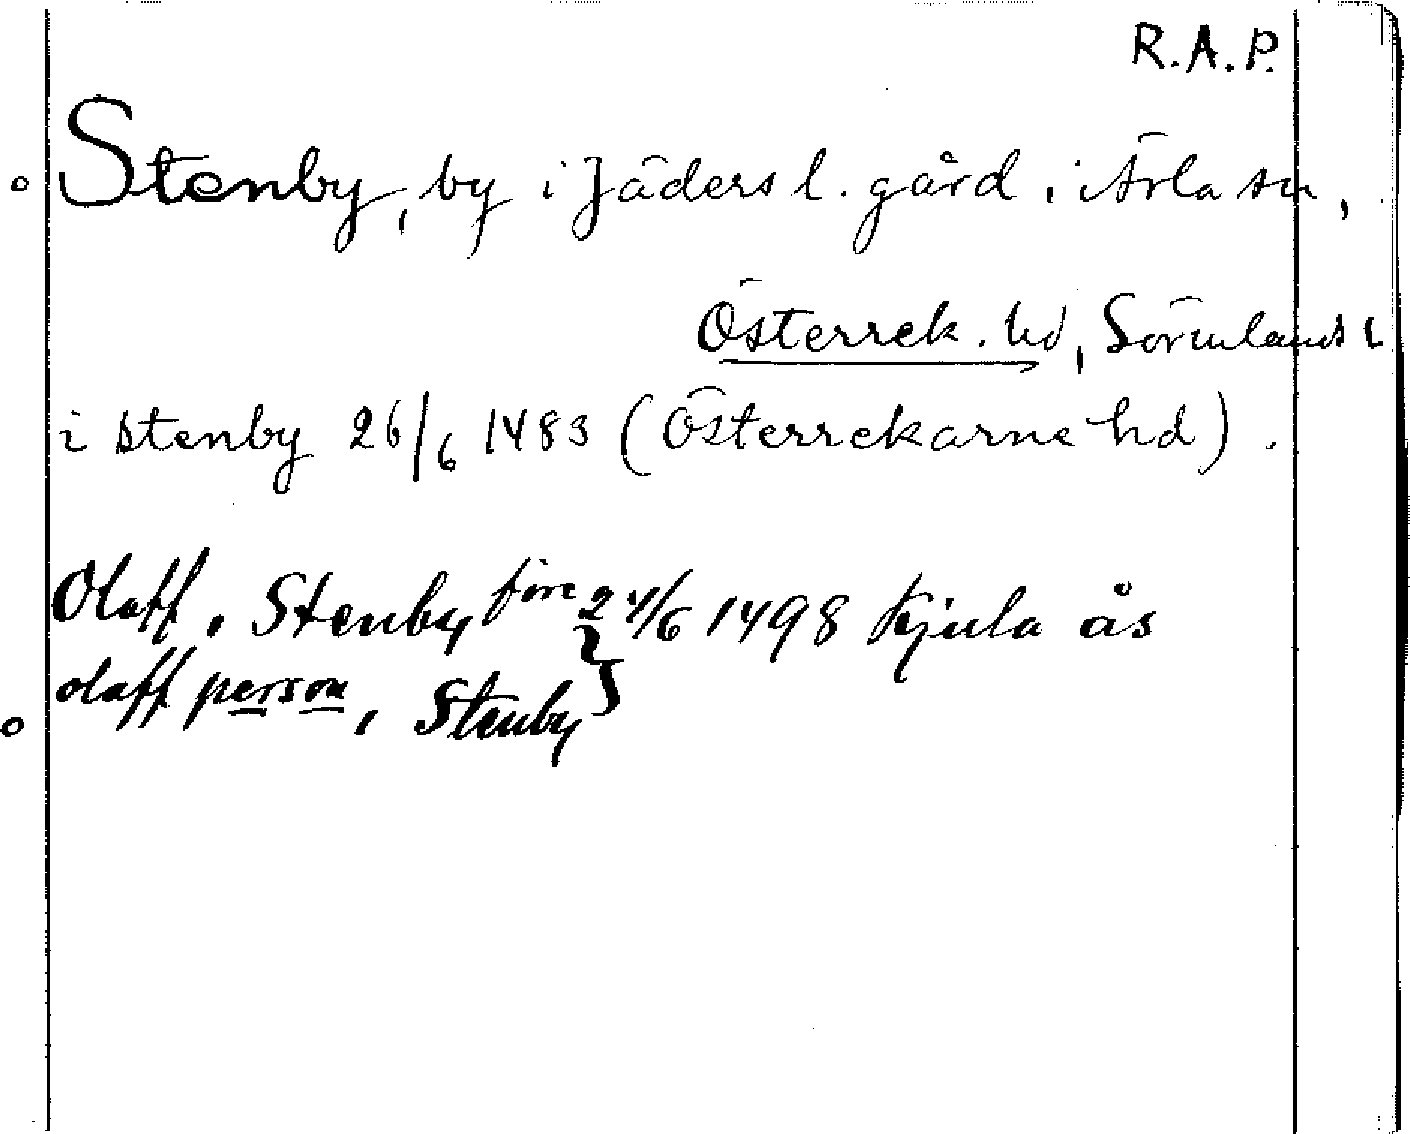 R.A.P.
Stenby, by i Jäders l. gård, i Ärla sn,
Österrek. hd, Sörmlands l
i stenby 26/6 1483 (Österrekarne hd).
Olaff, Stenby före 24/6 1498 Kjula ås
olaff person, Stenby }